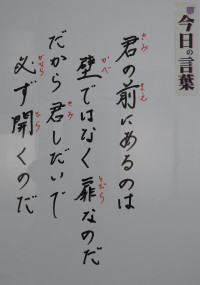 今日の言葉
君の前にあるのは
壁ではなく扉なのだ
だから君しだいで
必ず開くのだ